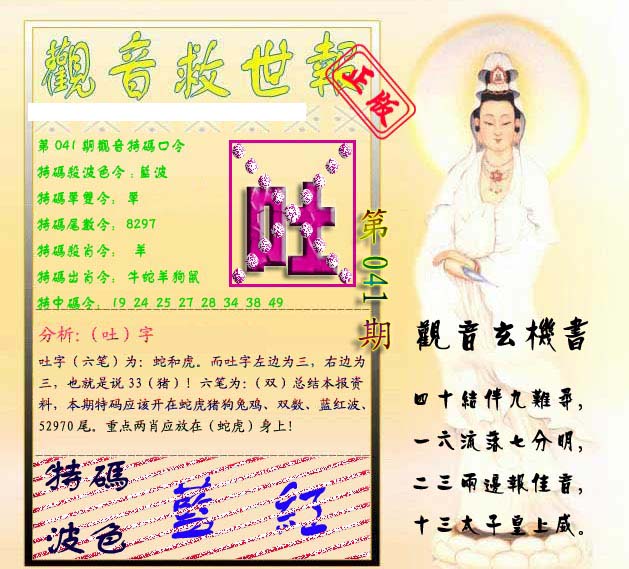 觀音救世報
正版
第041期觀音特碼口令
特碼殺波色令:藍波
特碼單雙令: 單
特碼尾數令: 8297
特碼殺肖令: 羊
特碼出肖令: 牛蛇羊狗鼠
特中碼令: 19 24 25 27 28 34 38 49
吐
第041期
分析:(吐)字
吐字(六笔)为:蛇和虎。而吐字左边为三,右边为
三,也就是说33(猪)!六笔为:(双)总结本报资
料,本期特码应该开在蛇虎猪狗兔鸡、双数、蓝红波、
52970尾。重点两肖应放在(蛇虎)身上!
特碼
波色
藍 紅
觀音玄機書
四十結伴九難尋,
一六流落七分明,
二三兩邊報佳音,
十三太子皇上威。